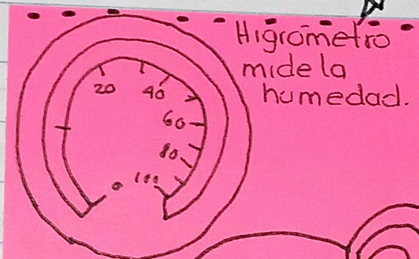 Higrómetro
mide la
humedad.
20
40
60
80
100
0